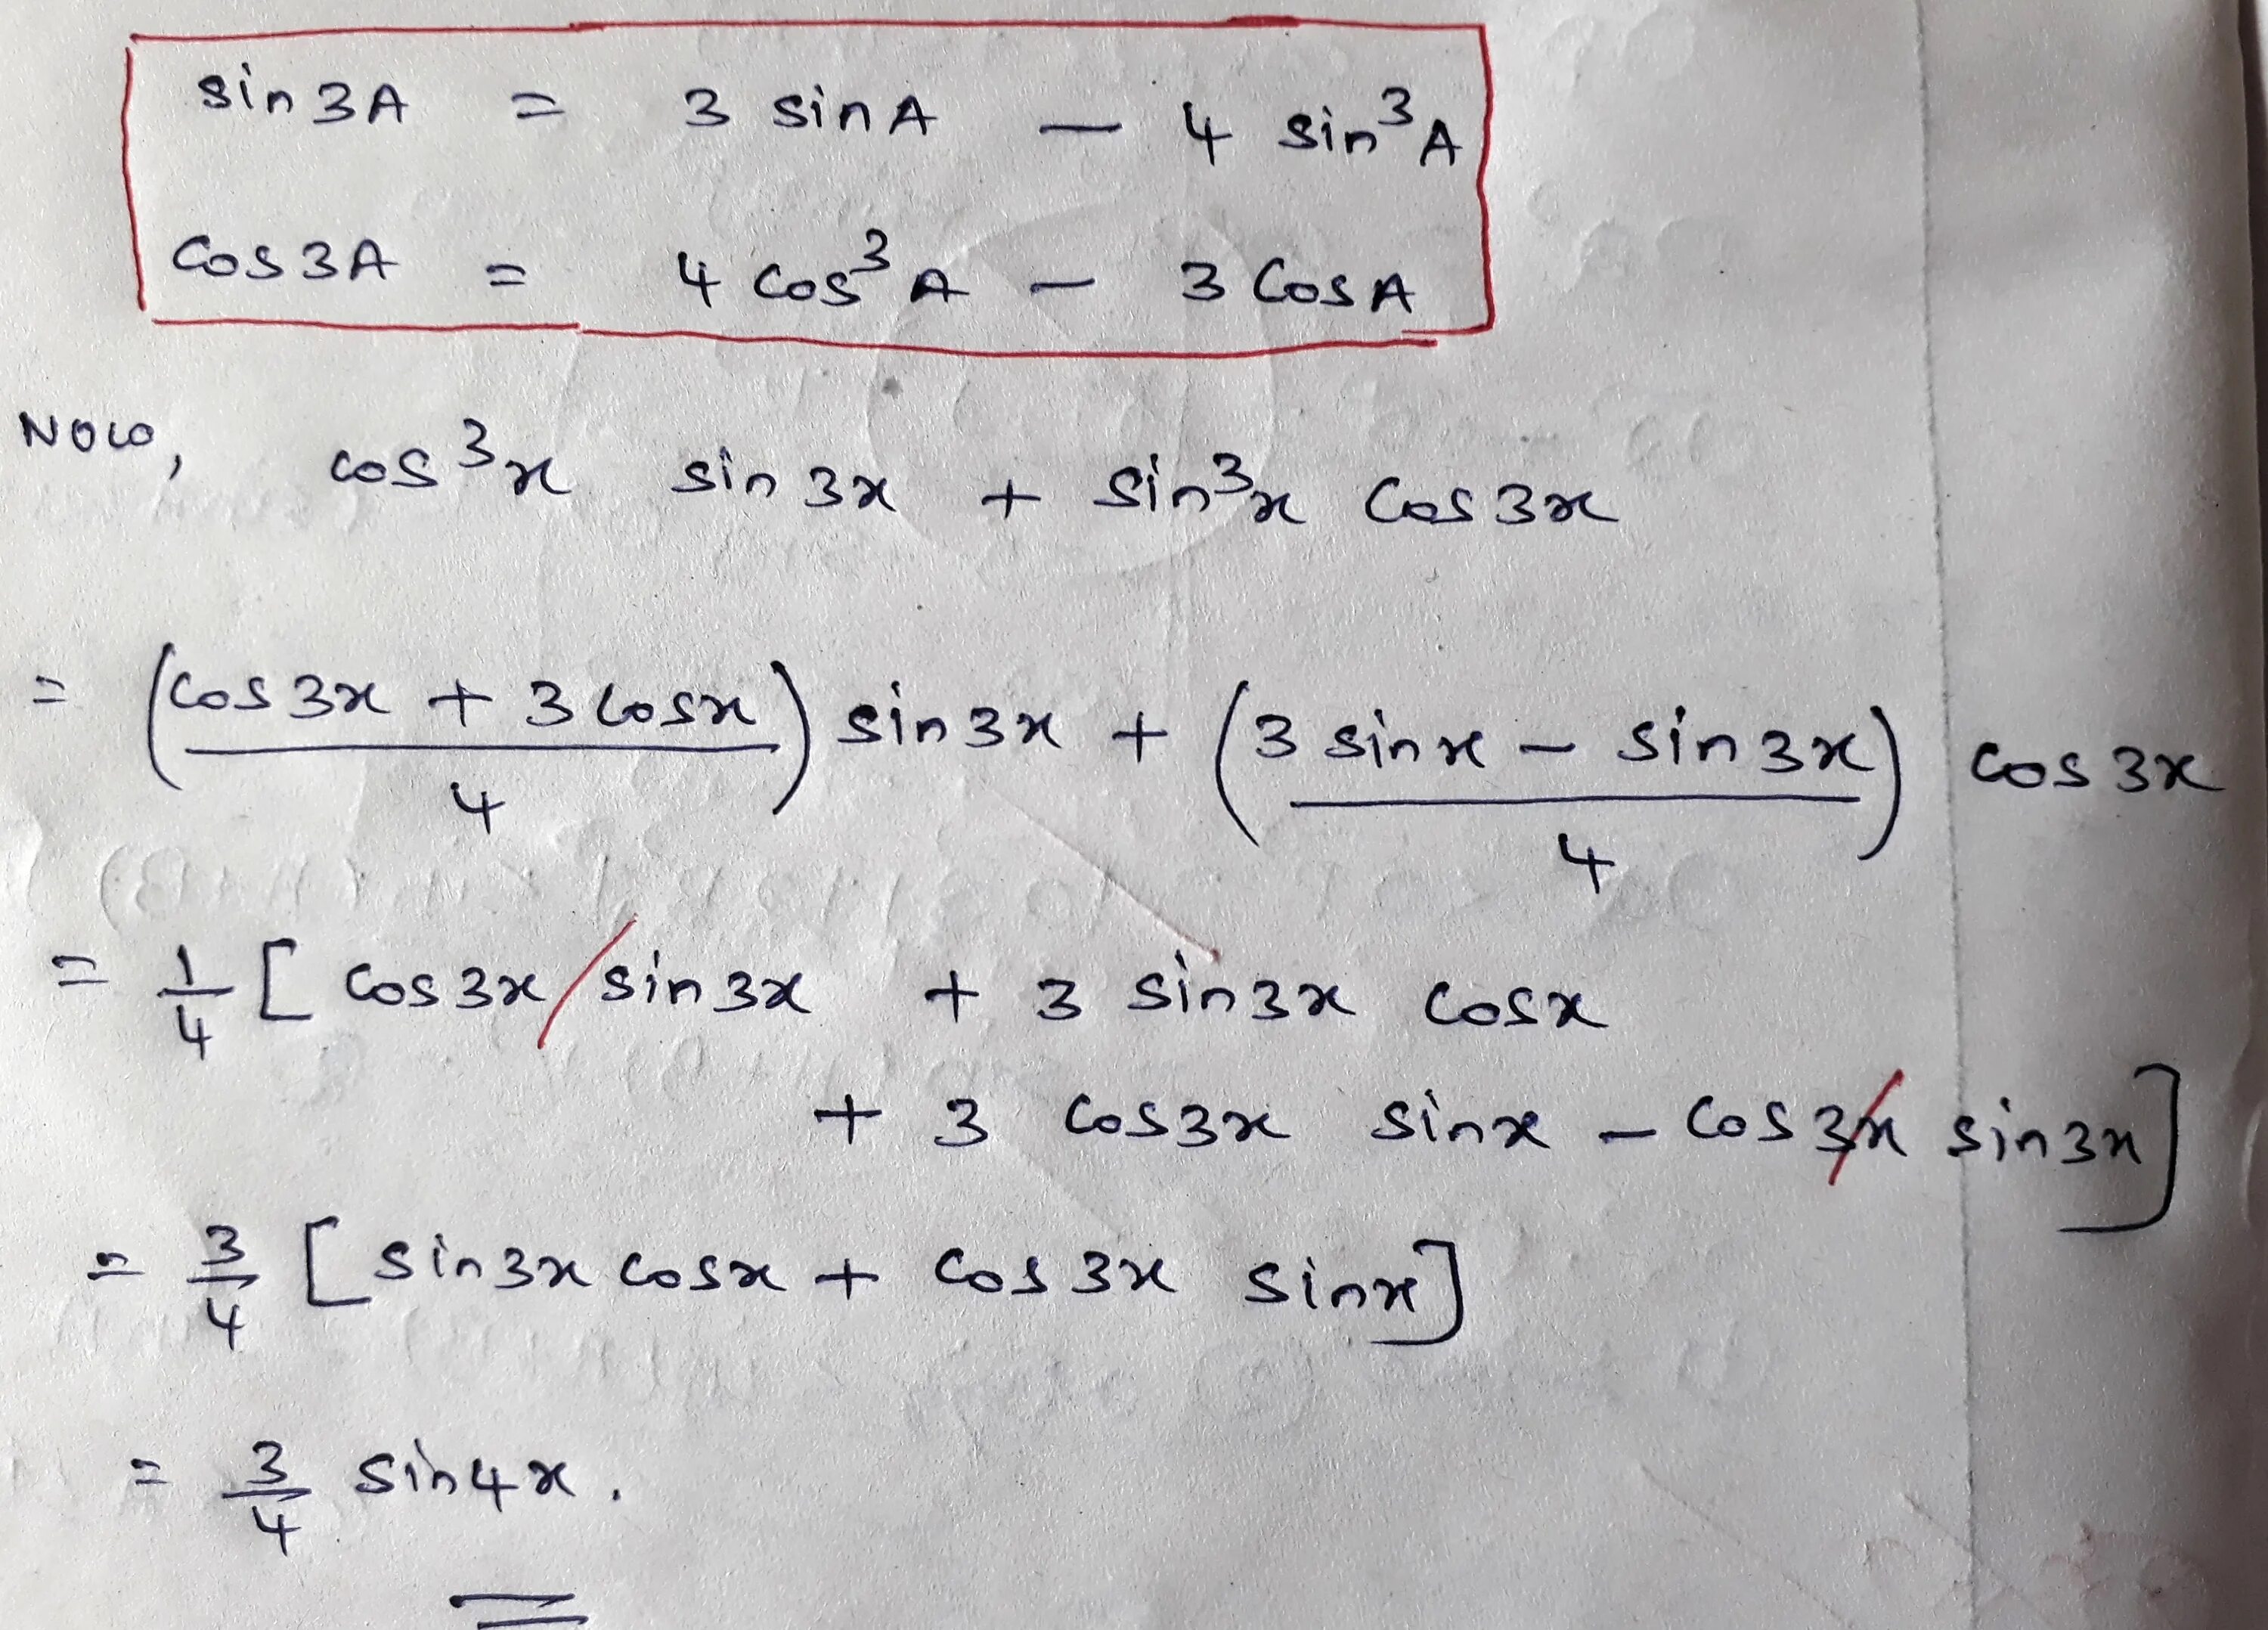 sin 3A = 3 sin A - 4 sin³A
cos 3A = 4 cos³A - 3 cos A
Now, cos³x sin 3x + sin³x cos 3x
= ((cos 3x + 3 cos x)/4) sin 3x + ((3 sin x - sin 3x)/4) cos 3x
= 1/4 [cos 3x sin 3x + 3 sin 3x cos x
+ 3 cos 3x sin x - cos 3x sin 3x]
= 3/4 [sin 3x cos x + cos 3x sin x]
= 3/4 sin 4x.